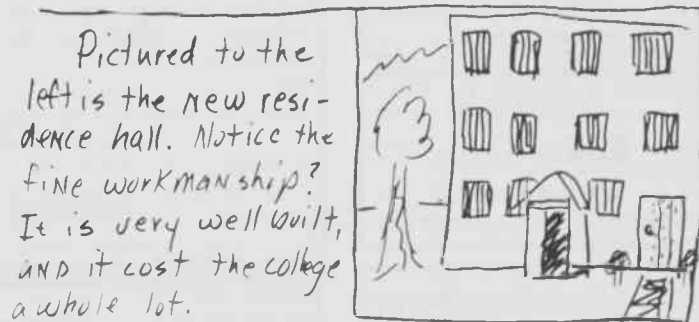 Pictured to the
left is the new resi-
dence hall. Notice the
fine workmanship?
It is very well built,
and it cost the college
a whole lot.